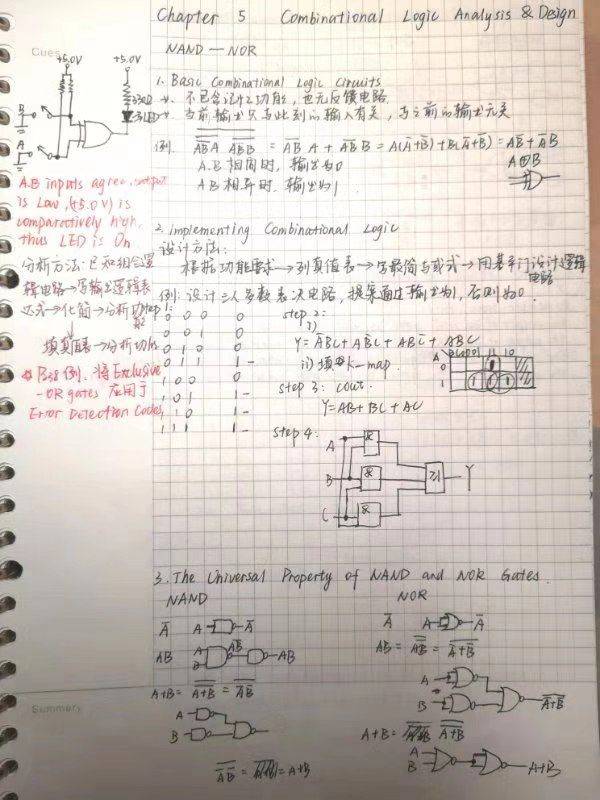 Chapter 5 Combinational Logic Analysis & Design
Cues
NAND — NOR
+5.0V +5.0V
330Ω
LED
B
A
A.B inputs agree, output
is Low, (+5.0V) is
comparatively high,
thus LED is On
分析方法: 已知组合逻
辑电路→写输出逻辑表
达式→化简→分析功能
填真值表→分析功能
例. 将Exclusive
-OR gates 应用于
Error Detection Codes.
1. Basic Combinational Logic Circuits
不包含记忆功能, 也无反馈电路.
当前输出只与此刻的输入有关, 与之前的输出无关
A.B 相同时, 输出为0
A B 相异时, 输出为1.
A⊕B
2. Implementing Combinational Logic
设计方法:
根据功能要求→列真值表→写最简与或式→用基本门设计逻辑
电路
例: 设计三人多数表决电路, 提案通过输出为1, 否则为0.
step 1:
0 0 0
0 0 1
0 1 0
0 1 1 1
1 0 0
1 0 1 1
1 1 0 1
1 1 1 1
step 2:
i)
Y = A̅BC + AB̅C + ABC̅ + ABC
ii) 填 K-map.
step 3: cout.
Y=AB+BC+AC
step 4:
A
&
B & ≥1 Y
C &
3. The Universal Property of NAND and NOR Gates.
NAND NOR
A̅ A A̅
A̅ A A̅
AB A B AB
A
B
A
B
A
B A+B
Summary